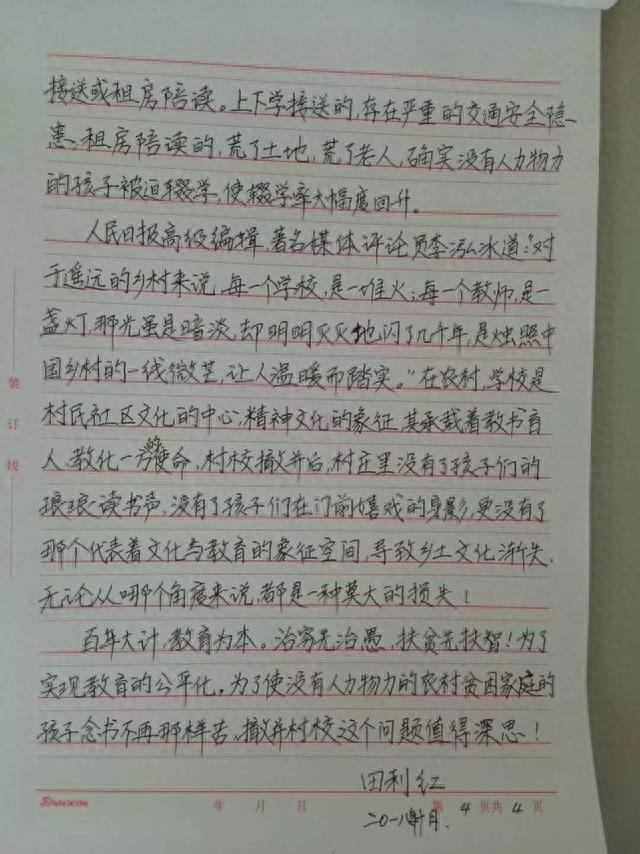 接送或租房陪读。上下学接送的,存在严重的交通安全隐
患;租房陪读的,荒了土地,荒了老人,确实没有人力物力
的孩子被迫辍学,使辍学率大幅度回升。
人民日报高级编辑,著名媒体评论员李泓冰道:“对
于遥远的乡村来说,每一个学校,是一堆火;每一个教师,是一
盏灯,那光虽是暗淡,却明明灭灭地闪了几千年,是烛照中
国乡村的一线微芒,让人温暖而踏实。”在农村,学校是
村民社区文化的中心,精神文化的象征,其承载着教书育
人,教化一方使命,村校撤并后,村庄里没有了孩子们的
琅琅读书声,没有了孩子们在门前嬉戏的身影,更没有了
那个代表着文化与教育的象征空间,导致乡土文化渐失,
无论从哪个角度来说,都是一种莫大的损失!
百年大计,教育为本。治穷先治愚,扶贫先扶智!为了
实现教育的公平化,为了使没有人力物力的农村贫困家庭的
孩子念书不再那样苦,撤并村校这个问题值得深思!
田利红
二〇一八年十月.
年 月 日
第 4 页共 4 页
装订线